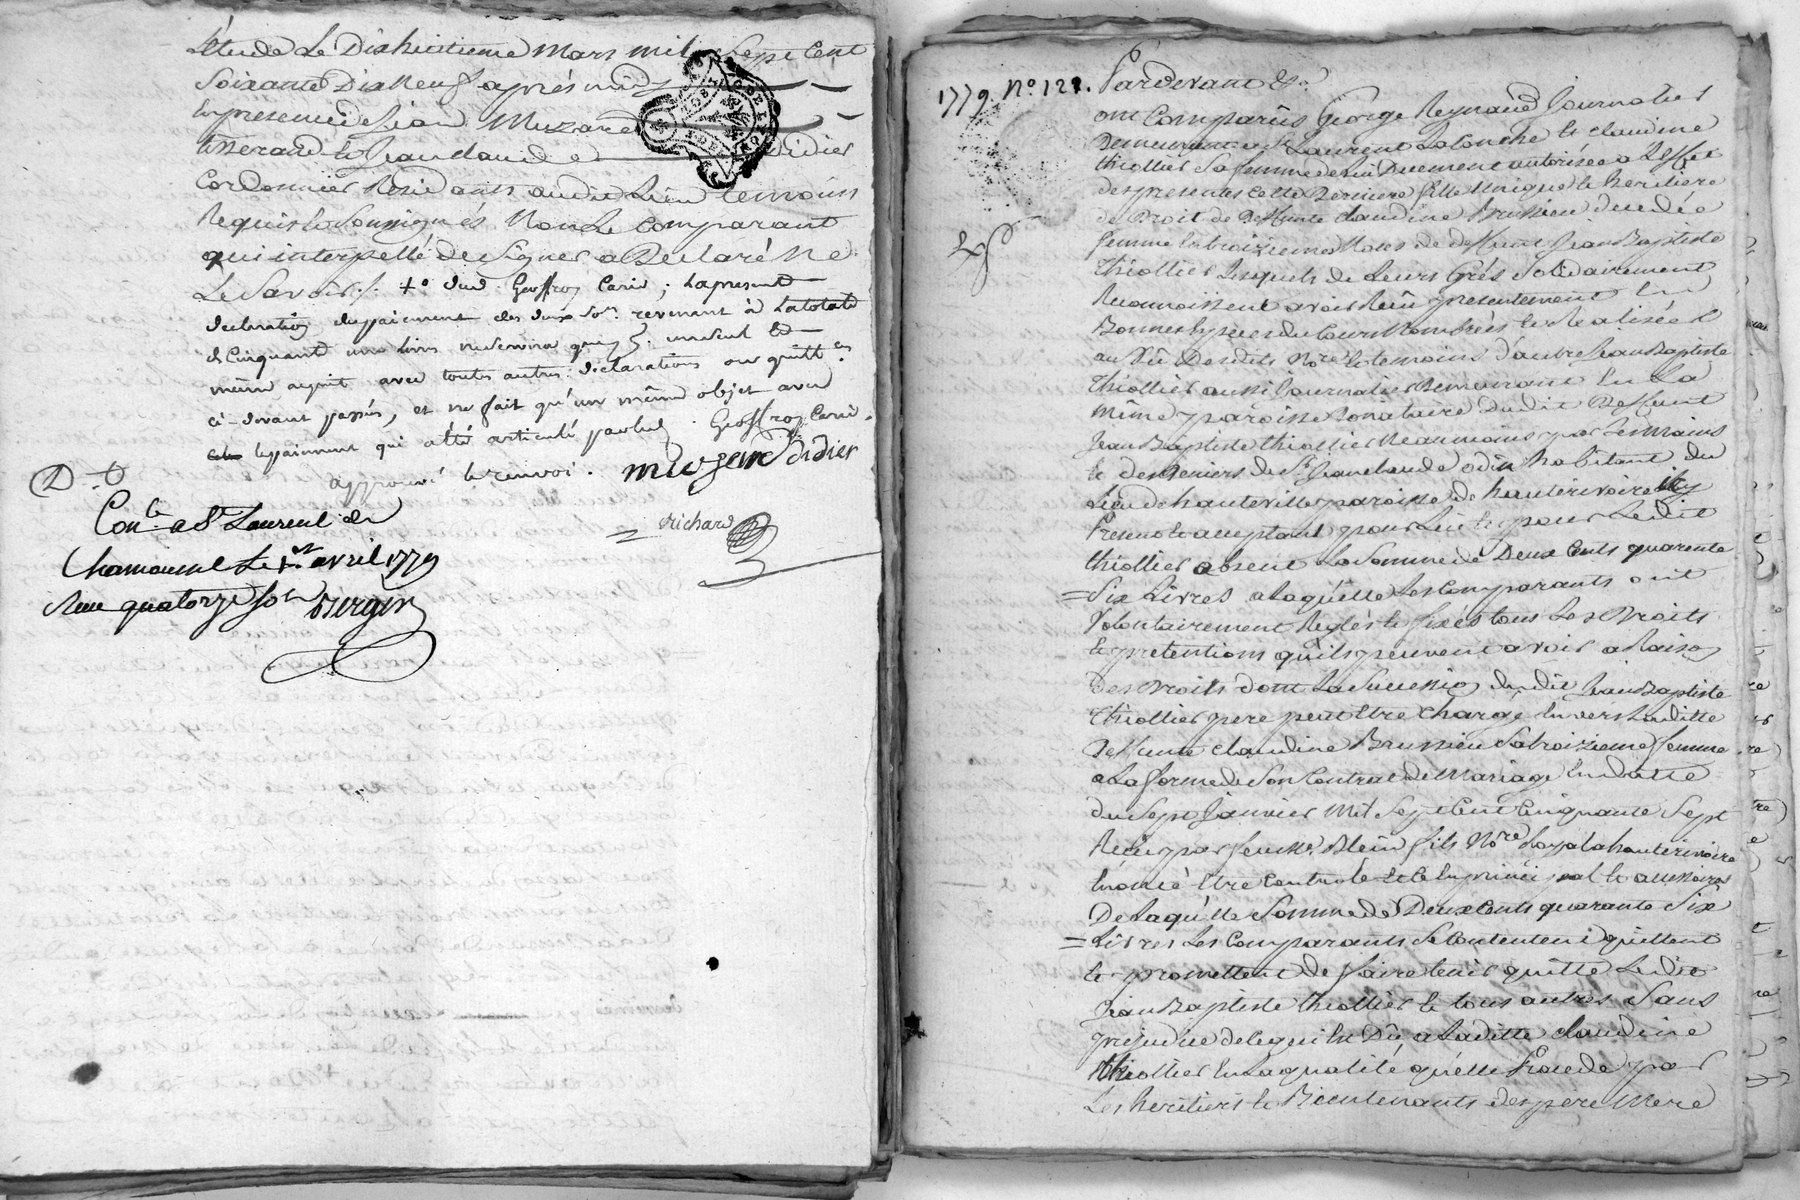 Létude Le Dixhuitieme Mars mil Sept Cent
Soixante Dix Neuf après midy
En presence de Jean Muzard
tisserand et Jean Claude Didier
Cordonnier Residants audit Lieu temoins
Requis et Soussignés Non Le Comparant
qui interpellé de Signer a Declaré Ne
Le Savoir ./. +° dud. Geoffroy Carid ; La presente
declaration du paiement des deux Som. revenant à La totale
de Cinquante une livres ne servira que d'un seul et
même acquit avec toutes autres déclarations ou quitt.ces
ci-devant passés, et ne fait qu'un même objet avec
le paiement qui a été articulé par led. Geoffroy Carid.
approuvé le renvoi. muzard Didier
richard
Con.lé a St Laurent de
Chamousset Le 1er avril 1779
Reçu quatorze sols Berger
1779. No. 121. Pardevant &a.
ont Comparus George Reynaud Journalier
Demeurant a St Laurent La Conche et Claudine
thiollier Sa femme de lui Duement autorisée a L'effet
des presentes cette Derniere fille Unique et heritiere
de Droit de Deffunte Claudine Brussieu decedée
femme En troiziemes Noces de deffunt Jean Baptiste
Thiollier Lesquels de Leurs Grés Solidairement
Reconnoissent avoir Reçu presentement En
Bonnes Especes du Cours Nombrées et Realisée
au Vu Desdits Nore et temoins d'autre Jean Baptiste
Thiollier aussi Journalier Demeurant En La
même paroisse Donataire Dudit Deffunt
Jean Baptiste thiollier Neanmoins par Les Mains
et des Deniers de Sr Jean Claude odin habitant du
Lieu de hauteville paroisse de hauterivoire icy
Present et acceptant pour Lui et pour Ledit
thiollier absent La Somme de Deux Cents quarente
= Six Livres a Laquelle Les Comparants ont
Volontairement Reglés et fixés tous Les Droits
et pretentions qu'ils peuvent avoir a Raison
Des Droits dont La Succession dudit Jean Baptiste
Thiollier pere peut Etre Chargé Envers Laditte
Deffunte Claudine Brussieu Sa troizieme femme
a La forme de Son Contrat de Mariage En datte
du Sept Janvier Mil Sept Cent Cinquante Sept
Reçu par feu Me Blein fils Nore Royal a hauterivoire
Enoncé Etre Controlé et ce En principal et accessoires
De Laquelle Somme de Deux Cents quarante Six
= Livres Les Comparants Se Contentent quittent
et promettent de faire tenir quitte Ledit
Jean Baptiste thiollier et tous autres Sans
prejudice de ce qui Est Dû a Laditte Claudine
thiollier En La qualité qu'elle procede par
Les heritiers et Bientenants des pere Mere